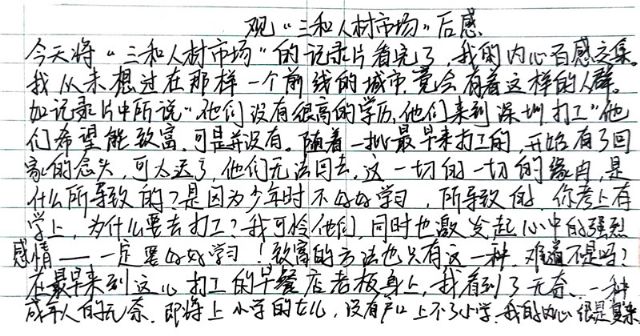 观“三和人材市场”后感
今天将“三和人材市场”的记录片看完了,我的内心百感交集。
我从未想过在那样一个前线的城市,竟会有着这样的人群。
如记录片中所说“他们没有很高的学历,他们来到深圳打工”他
们希望能致富,可是并没有。随着一批最早来打工的,开始有了回
家的念头,可太远了,他们无法回去,这一切的一切的缘由,是
什么所导致的?是因为少年时不好好学习,所导致的,你考上有
学上,为什么要去打工?我可怜他们,同时也激发起心中的强烈
感情——一定要好好学习!致富的方法也只有这一种,难道不是吗?
在最早来到这儿打工的早餐店老板身上,我看到了无奈,一种
成年人的无奈。即将上小学的女儿,没有户口上不了小学,我的内心很是复杂